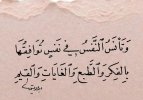 وَتَأْنَسُ النَّفْسُ فِي نَفْسٍ تُوَافِقُهَا
بِالفِكْرِ وَالطَّبْعِ وَالغَايَاتِ وَالقِيَمِ